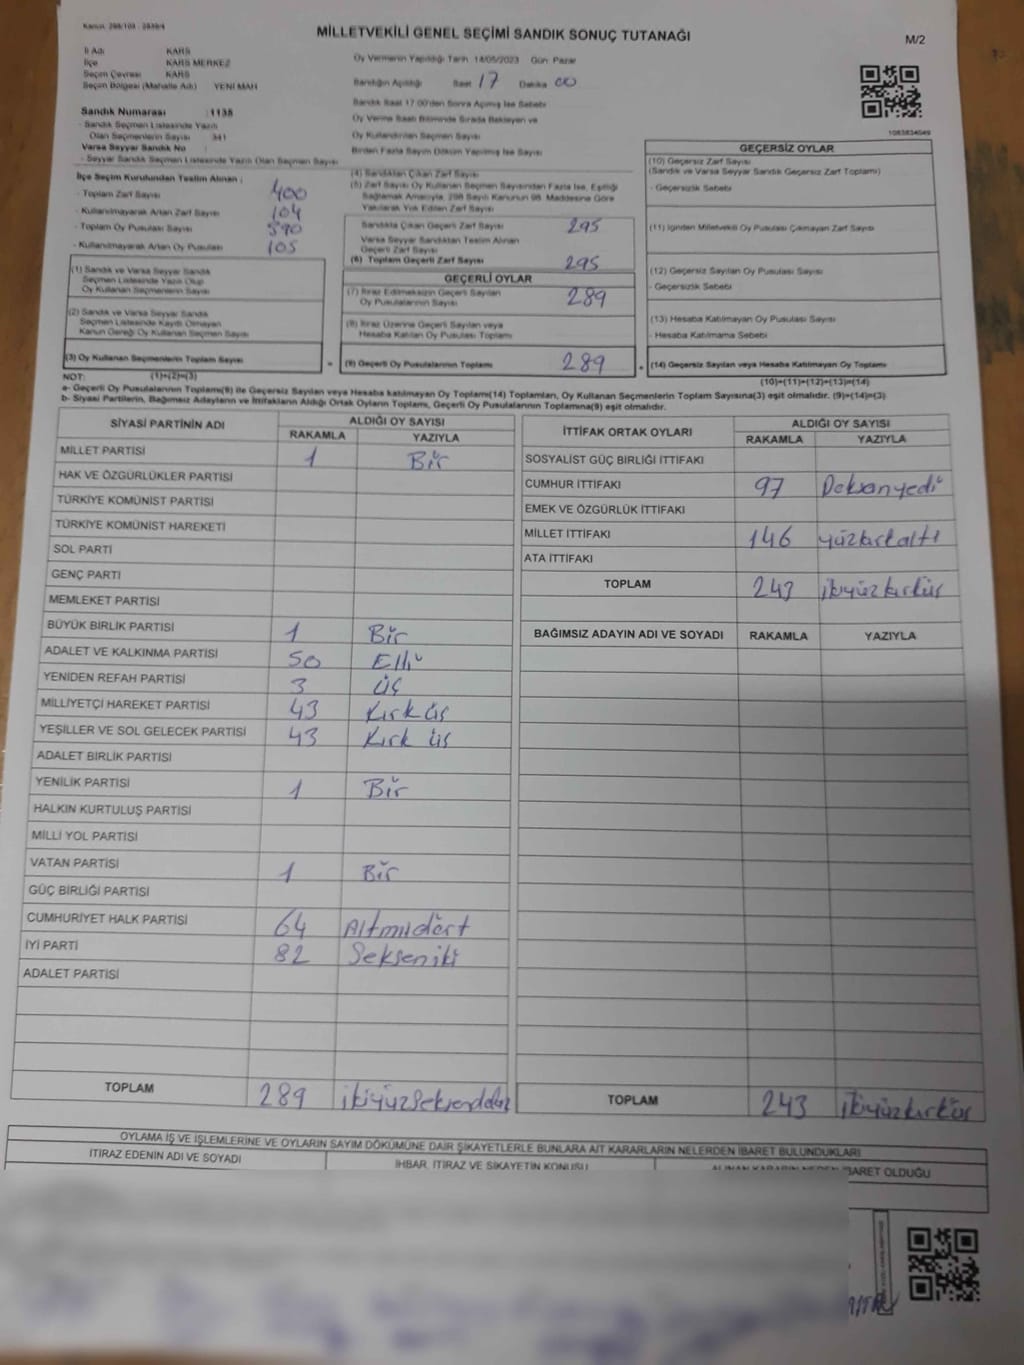 Kanun: 298/103 - 2839/4
MİLLETVEKİLİ GENEL SEÇİMİ SANDIK SONUÇ TUTANAĞI
M/2
İl Adı KARS
İlçe KARS MERKEZ
Seçim Çevresi KARS
Seçim Bölgesi (Mahalle Adı) YENİ MAH
Oy Vermenin Yapıldığı Tarih 14/05/2023 Gün Pazar
Sandığın Açıldığı Saat 17 Dakika 00
Sandık Saat 17.00'den Sonra Açılmış İse Sebebi
Oy Verme Saati Bitiminde Sırada Bekleyen ve
Oy Kullandırılan Seçmen Sayısı
Birden Fazla Sayım Döküm Yapılmış İse Sayısı
1083834049
Sandık Numarası :1135
- Sandık Seçmen Listesinde Yazılı
Olan Seçmenlerin Sayısı 341
Varsa Seyyar Sandık No :
- Seyyar Sandık Seçmen Listesinde Yazılı Olan Seçmen Sayısı
İlçe Seçim Kurulundan Teslim Alınan ;
- Toplam Zarf Sayısı 400
- Kullanılmayarak Artan Zarf Sayısı 104
- Toplam Oy Pusulası Sayısı 390
- Kullanılmayarak Artan Oy Pusulası 105
(1) Sandık ve Varsa Seyyar Sandık
Seçmen Listesinde Yazılı Olup
Oy Kullanan Seçmenlerin Sayısı
(2) Sandık ve Varsa Seyyar Sandık
Seçmen Listesinde Kayıtlı Olmayan
Kanun Gereği Oy Kullanan Seçmen Sayısı
(3) Oy Kullanan Seçmenlerin Toplam Sayısı
(4) Sandıktan Çıkan Zarf Sayısı
(5) Zarf Sayısı Oy Kullanan Seçmen Sayısından Fazla İse, Eşitliği
Sağlamak Amacıyla, 298 Sayılı Kanunun 98. Maddesine Göre
Yakılarak Yok Edilen Zarf Sayısı
Sandıkta Çıkan Geçerli Zarf Sayısı 295
Varsa Seyyar Sandıktan Teslim Alınan
Geçerli Zarf Sayısı
(6) Toplam Geçerli Zarf Sayısı 295
GEÇERLİ OYLAR
(7) İtiraz Edilmeksizin Geçerli Sayılan
Oy Pusulalarının Sayısı 289
(8) İtiraz Üzerine Geçerli Sayılan veya
Hesaba Katılan Oy Pusulaları Toplamı
= (9) Geçerli Oy Pusulalarının Toplamı 289
GEÇERSİZ OYLAR
(10) Geçersiz Zarf Sayısı
(Sandık ve Varsa Seyyar Sandık Geçersiz Zarf Toplamı)
- Geçersizlik Sebebi
(11) İçinden Milletvekili Oy Pusulası Çıkmayan Zarf Sayısı
(12) Geçersiz Sayılan Oy Pusulası Sayısı
- Geçersizlik Sebebi
(13) Hesaba Katılmayan Oy Pusulası Sayısı
- Hesaba Katılmama Sebebi
+ (14) Geçersiz Sayılan veya Hesaba Katılmayan Oy Toplamı
NOT: (1)+(2)=(3)
(10)+(11)+(12)+(13)=(14)
a- Geçerli Oy Pusulalarının Toplamı(9) ile Geçersiz Sayılan veya Hesaba katılmayan Oy Toplamı(14) Toplamları, Oy Kullanan Seçmenlerin Toplam Sayısına(3) eşit olmalıdır. (9)+(14)=(3)
b- Siyasi Partilerin, Bağımsız Adayların ve İttifakların Aldığı Ortak Oyların Toplamı, Geçerli Oy Pusulalarının Toplamına(9) eşit olmalıdır.
SİYASİ PARTİNİN ADI ALDIĞI OY SAYISI
RAKAMLA YAZIYLA
MİLLET PARTİSİ 1 Bir
HAK VE ÖZGÜRLÜKLER PARTİSİ
TÜRKİYE KOMÜNİST PARTİSİ
TÜRKİYE KOMÜNİST HAREKETİ
SOL PARTİ
GENÇ PARTİ
MEMLEKET PARTİSİ
BÜYÜK BİRLİK PARTİSİ 1 Bir
ADALET VE KALKINMA PARTİSİ 50 Elli
YENİDEN REFAH PARTİSİ 3 üç
MİLLİYETÇİ HAREKET PARTİSİ 43 Kırk üç
YEŞİLLER VE SOL GELECEK PARTİSİ 43 Kırk üç
ADALET BİRLİK PARTİSİ
YENİLİK PARTİSİ 1 Bir
HALKIN KURTULUŞ PARTİSİ
MİLLİ YOL PARTİSİ
VATAN PARTİSİ 1 Bir
GÜÇ BİRLİĞİ PARTİSİ
CUMHURİYET HALK PARTİSİ 64 Altmıdört
İYİ PARTİ 82 Sekseniki
ADALET PARTİSİ
TOPLAM 289 ikiyüzseksendokuz
İTTİFAK ORTAK OYLARI ALDIĞI OY SAYISI
RAKAMLA YAZIYLA
SOSYALİST GÜÇ BİRLİĞİ İTTİFAKI
CUMHUR İTTİFAKI 97 Doksanyedi
EMEK VE ÖZGÜRLÜK İTTİFAKI
MİLLET İTTİFAKI 146 yüzkırkaltı
ATA İTTİFAKI
TOPLAM 243 ikiyüzkırküç
BAĞIMSIZ ADAYIN ADI VE SOYADI RAKAMLA YAZIYLA
TOPLAM 243 ikiyüzkırküç
OYLAMA İŞ VE İŞLEMLERİNE VE OYLARIN SAYIM DÖKÜMÜNE DAİR ŞİKAYETLERLE BUNLARA AİT KARARLARIN NELERDEN İBARET BULUNDUKLARI
İTİRAZ EDENİN ADI VE SOYADI
İHBAR, İTİRAZ VE ŞİKAYETİN KONUSU
ALINAN KARARIN NEDEN İBARET OLDUĞU